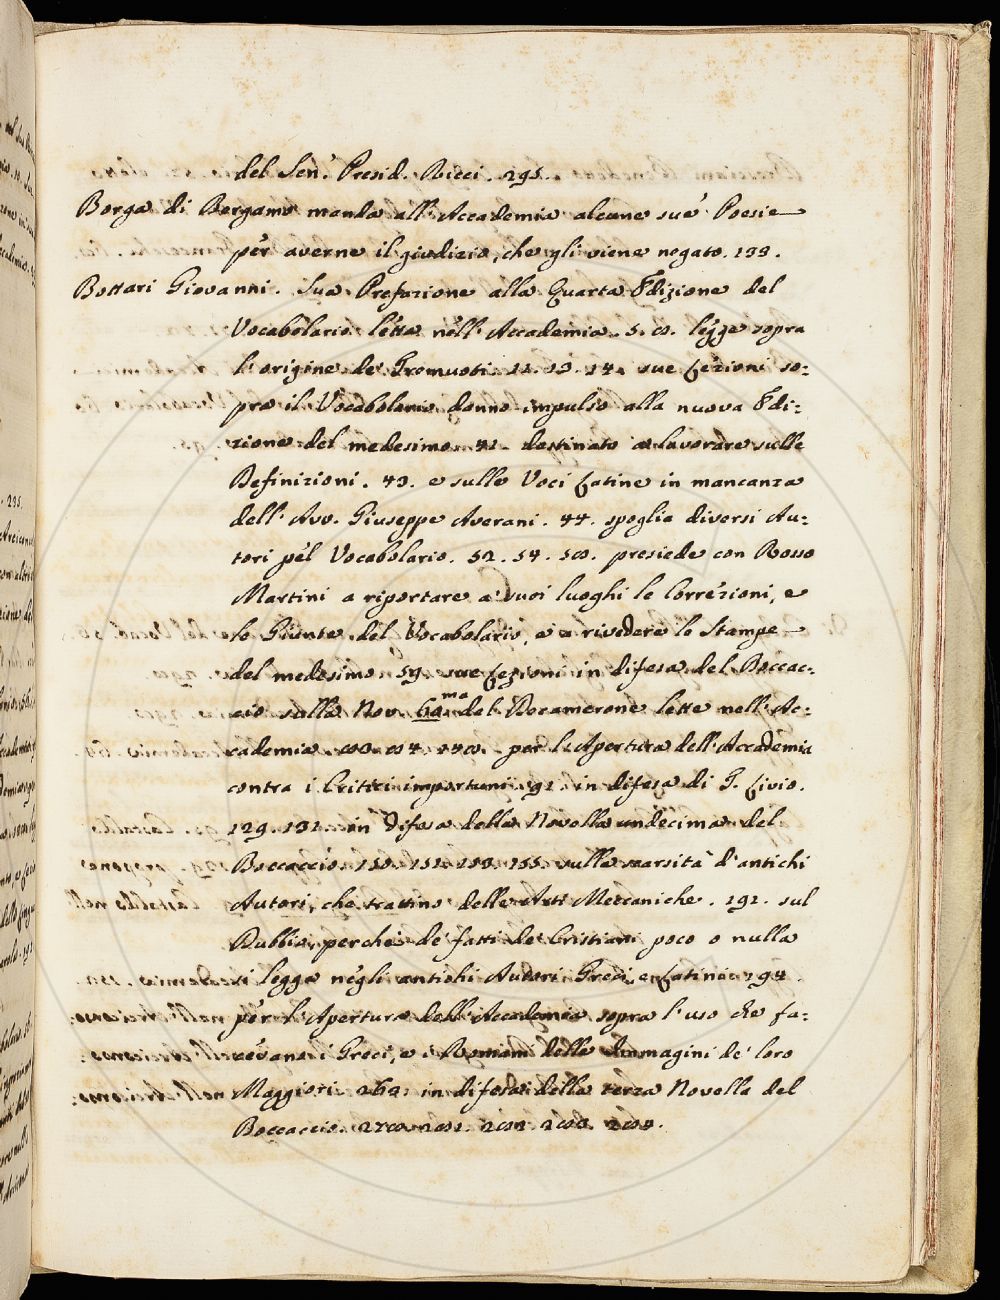 del Sen.^r Presid. Ricci. 295.
Borga di Bergamo manda all' Accademia alcune sue Poesie
per averne il giudizio, che gli viene negato. 139.
Bottari Giovanni. Sua Prefazione alla Quarta Edizione del
Vocabolario letta nell' Accademia. 5. 8. legge sopra
l' origine de' 12. 13. 14. sue Lezioni so=
pra il Vocabolario danno impulso alla nuova Edi=
zione del medesimo. 42. destinato a lavorare sulle
Definizioni. 43. e sulle Voci Latine in mancanza
dell' Avv. Giuseppe Averani. 44. spoglia diversi Au=
tori pel Vocabolario. 52. 54. 58. presiede con Rosso
Martini a riportare a' suoi luoghi le Correzioni, e
le Giunte del Vocabolario, e a rivedere le Stampe
del medesimo. 59. sue Lezioni in difesa del Boccac=
cio sulla Nov. 60.^ma del Decamerone lette nell' Ac=
cademia. 83. 84. 148. per l' Apertura dell' Accademia
contra i Critici importuni. 92. in difesa di T. Livio.
129. 132. in difesa della Novella undecima del
Boccaccio. 150. 152. 153. 155. sulla scarsità d' antichi
Autori, che trattino delle Arti Meccaniche. 192. sul
Dubbio, perchè de' fatti de' Cristiani poco o nulla
si legga negli antichi Autori Greci, e Latini. 294.
per l' Apertura dell' Accademia sopra l' uso che fa=
cevano i Greci, e i Romani delle Immagini de' loro
Maggiori. 262. in difesa della terza Novella del
Boccaccio. 278. 281. 282. 288.